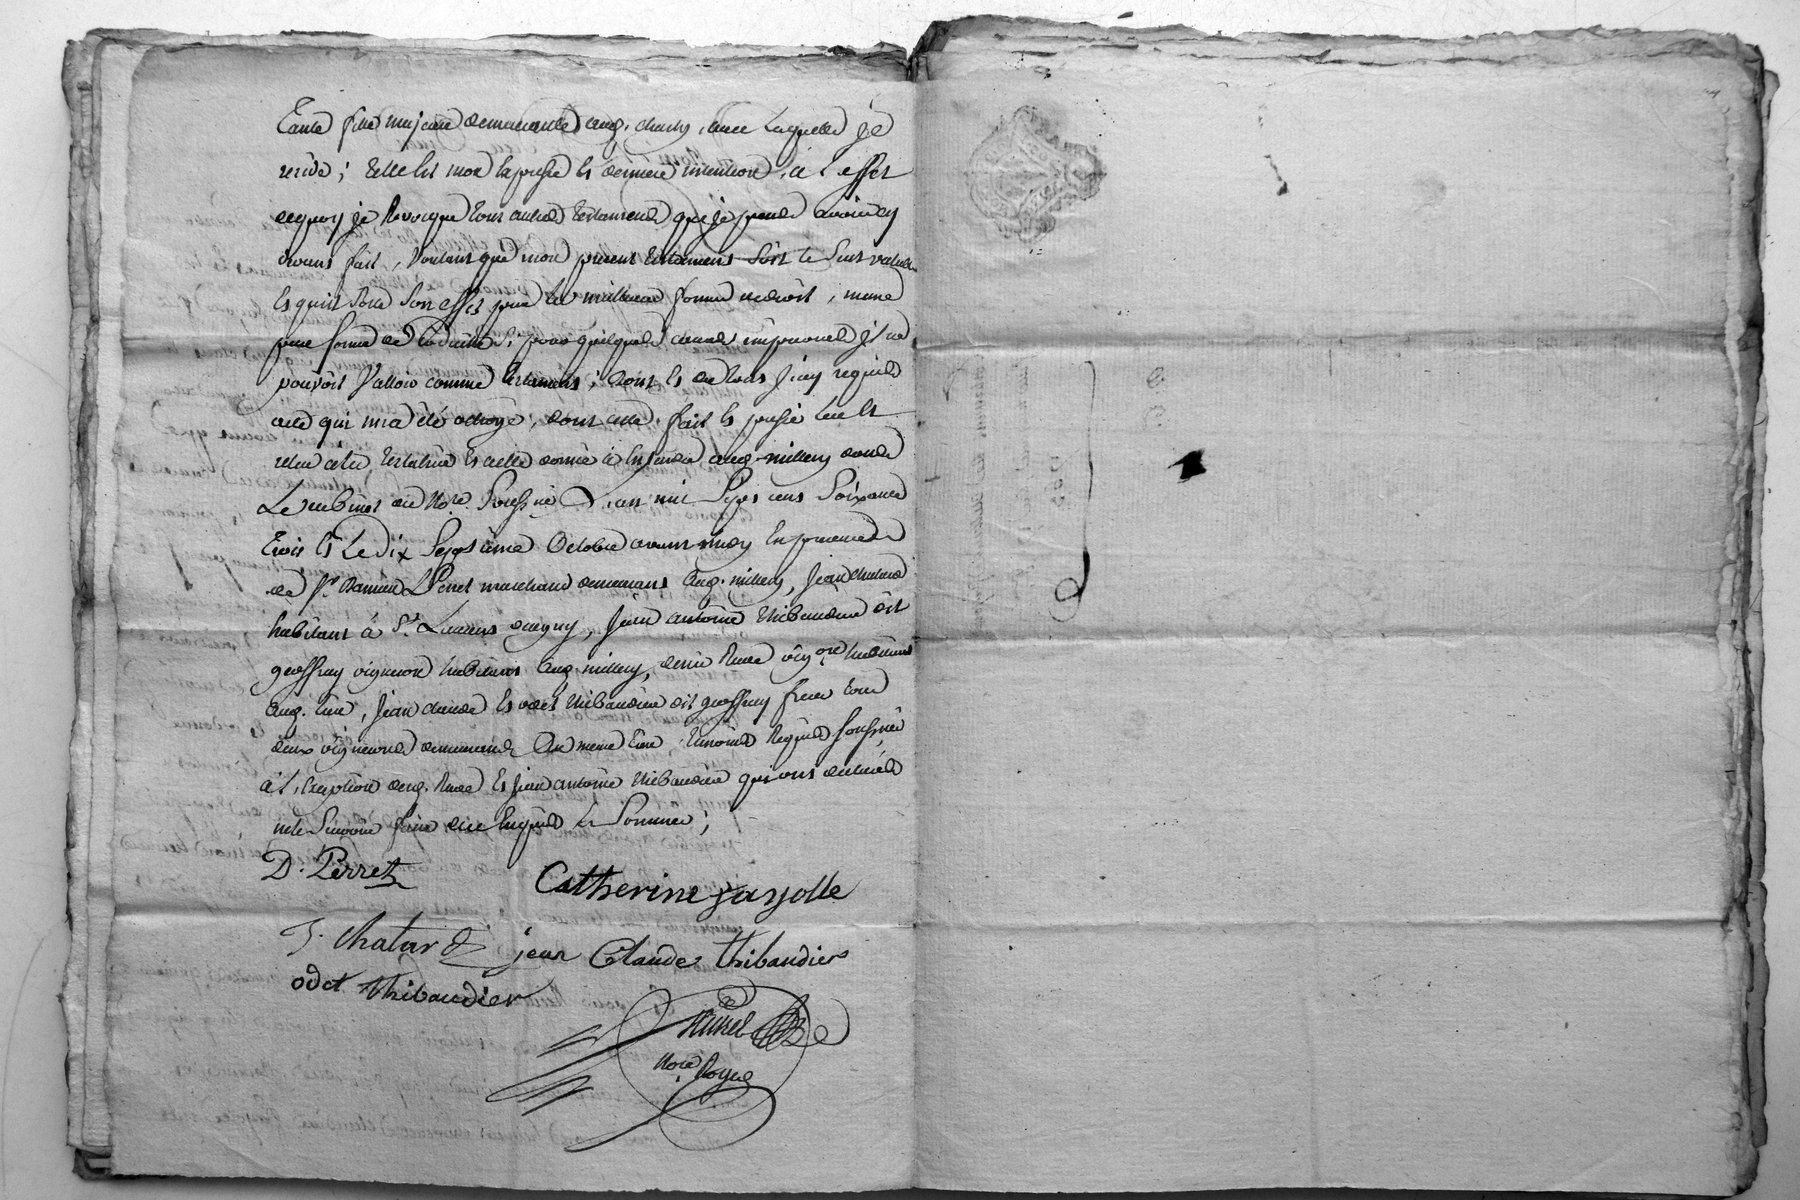 Tante fille majeure demeurante aud. charly, avec laquelle je
reside; telle est mon expresse et derniere intention, a l'effet
dequoy je revoque tous autres testaments que je peus avoir cy
devant fait, voulant que mon present testament soit le seul valable
et qu'il sorte son effet par la meilleure forme de droit, meme
par forme de codicille, si pour quelques causes impreveues il ne
pouvoit valloir comme testament; dont et du tout j'ay requis
acte qui m'a été octroyé, dont acte, fait et passé leu et
releu a la testatrice et à elle donné à entendre aud. millery dans
Le cabinet du No.re soussigné L'an mil sept cent soixante
trois et Le dix septième octobre avant midy En presence
de s.r Damien Perret marchand demeurant aud. millery, Jean chatard
habitant à S.t Laurens dagny, Jean antoine thibaudier dit
geoffray vigneron habitant aud. millery, vigneron habitant
aud. lieu, Jean claude et odet thibaudier dit geoffray freres tous
deux vignerons demeurants au meme lieu, temoins requis soussignés
à l'exception dud. et Jean antoine thibaudier qui ont declaré
ne le sçavoir faire de ce enquis et sommés;
D. Perret
Catherine fayolle
J. chatard
jean Claude thibaudier
odet thibaudier
No.re Royal